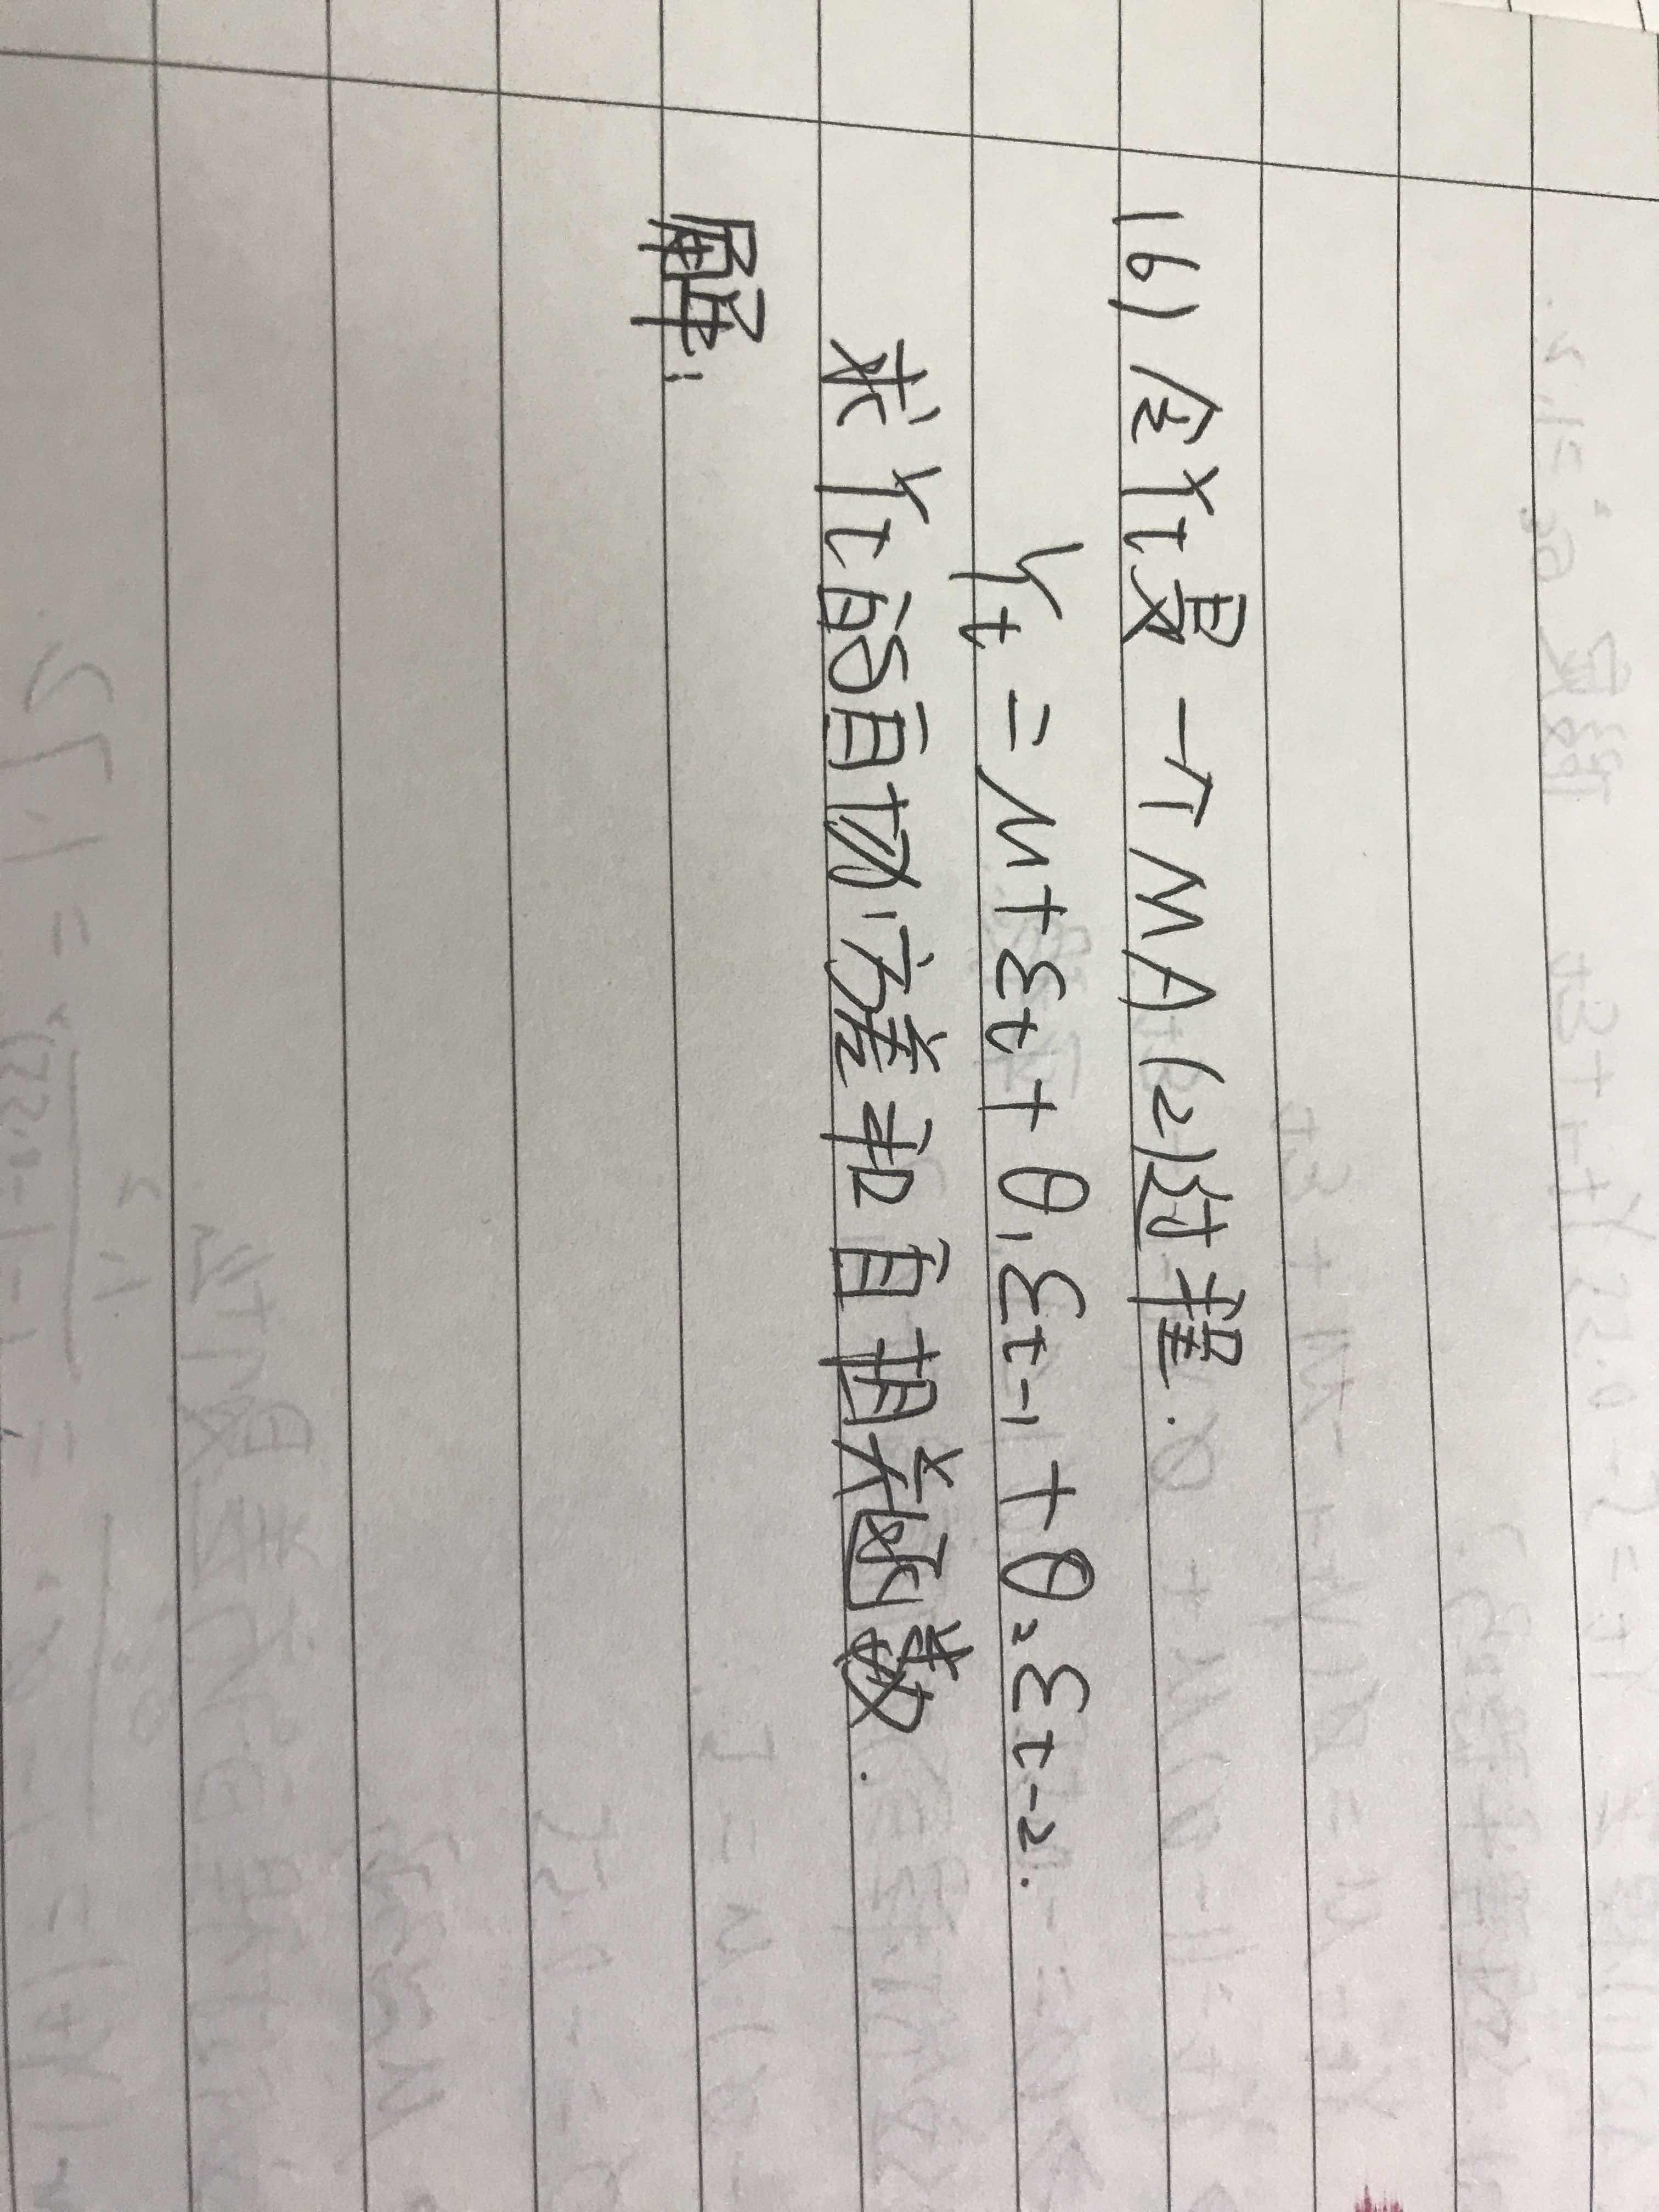 16) 令Yt是一个MA(2)过程.
Yt = μ + εt + θ₁εt-1 + θ₂εt-2.
求Yt的自协方差和自相关函数.
解: